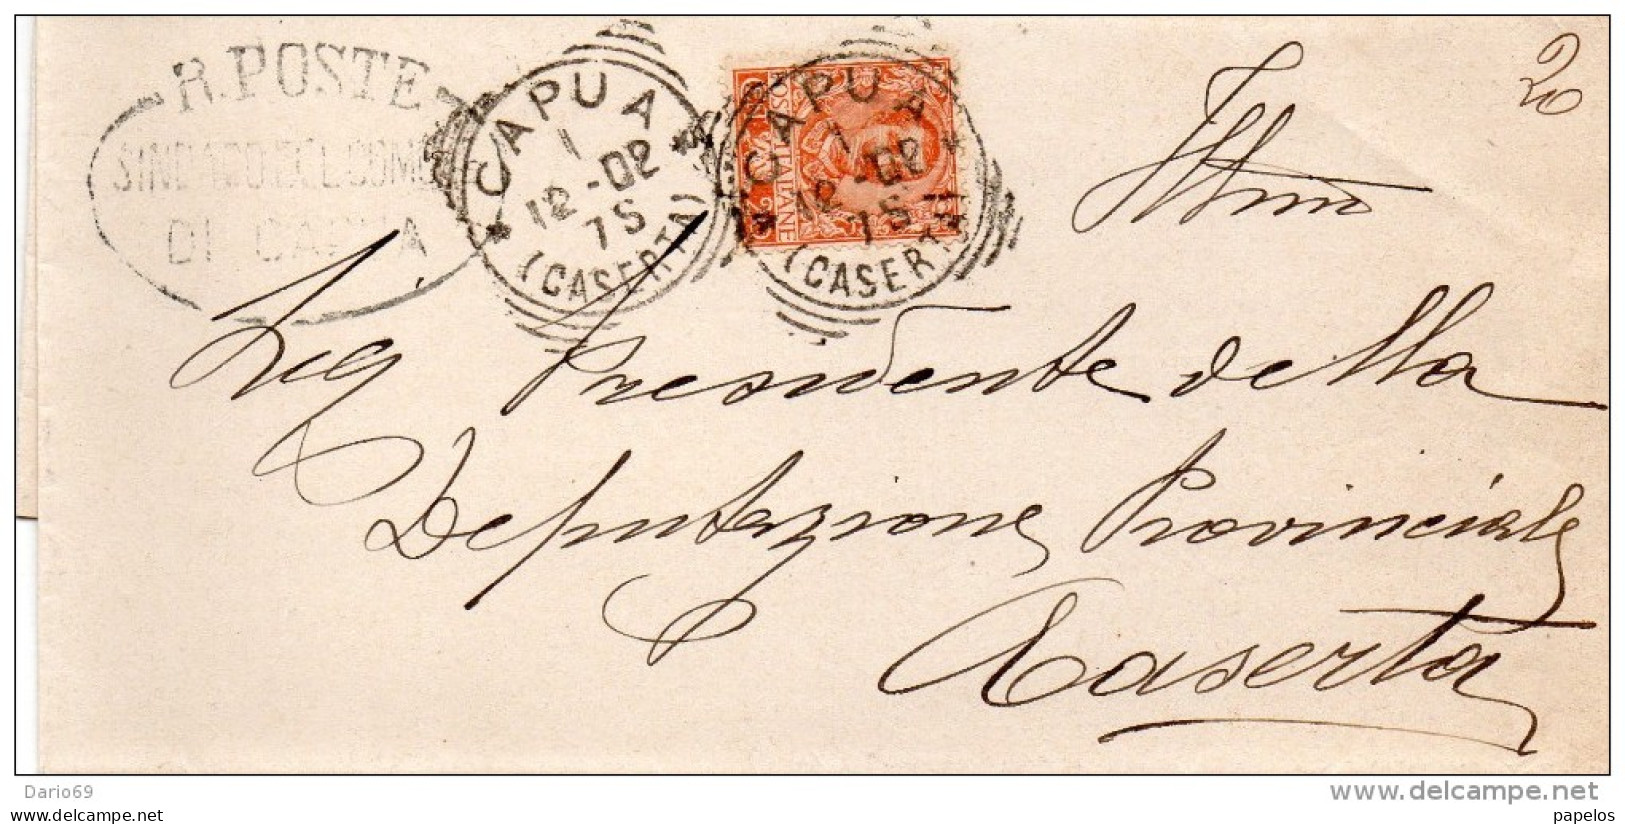 R. POSTE
SINDACO DEL COMUNE
DI CAPUA
CAPUA
1
12-02
7S
(CASERTA)
POSTE ITALIANE
CAPUA
1
12-02
7S
(CASERTA)
20
Ill.mo
Sig Presidente della
Deputazione Provinciale
Caserta
Dario69
www.delcampe.net
papelos